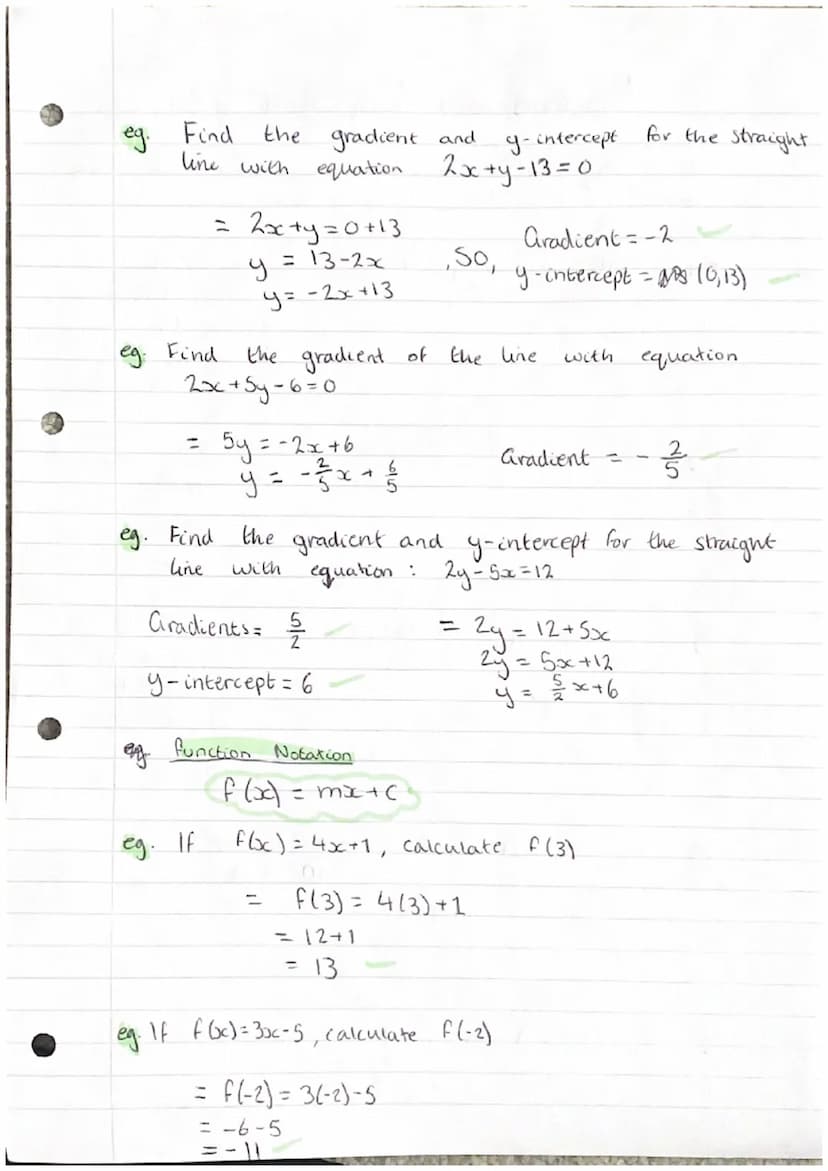 eg. Find the gradient and y-intercept for the straight
line with equation 2x+y-13=0
= 2x+y=0+13
y = 13-2x
y= -2x+13
, SO,
Gradient = -2
y-intercept = (0,13)
eg. Find the gradient of the line with equation
2x+5y-6=0
= 5y = -2x+6
y = -2/5x + 6/5
Gradient = - 2/5
eg. Find the gradient and y-intercept for the straight
line with equation : 2y-5x=12
Gradients= 5/2
y-intercept = 6
= 2y = 12+5x
2y = 5x+12
y = 5/2x+6
eg. Function Notation
f(x) = mx+c
eg. If f(x)=4x+1, calculate f(3)
= f(3) = 4(3)+1
= 12+1
= 13
eg. If f(x)=3x-5, calculate f(-2)
= f(-2) = 3(-2)-5
= -6-5
= -11